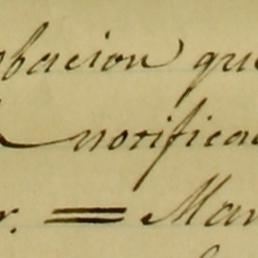 bacion que
notifica
r. = Man